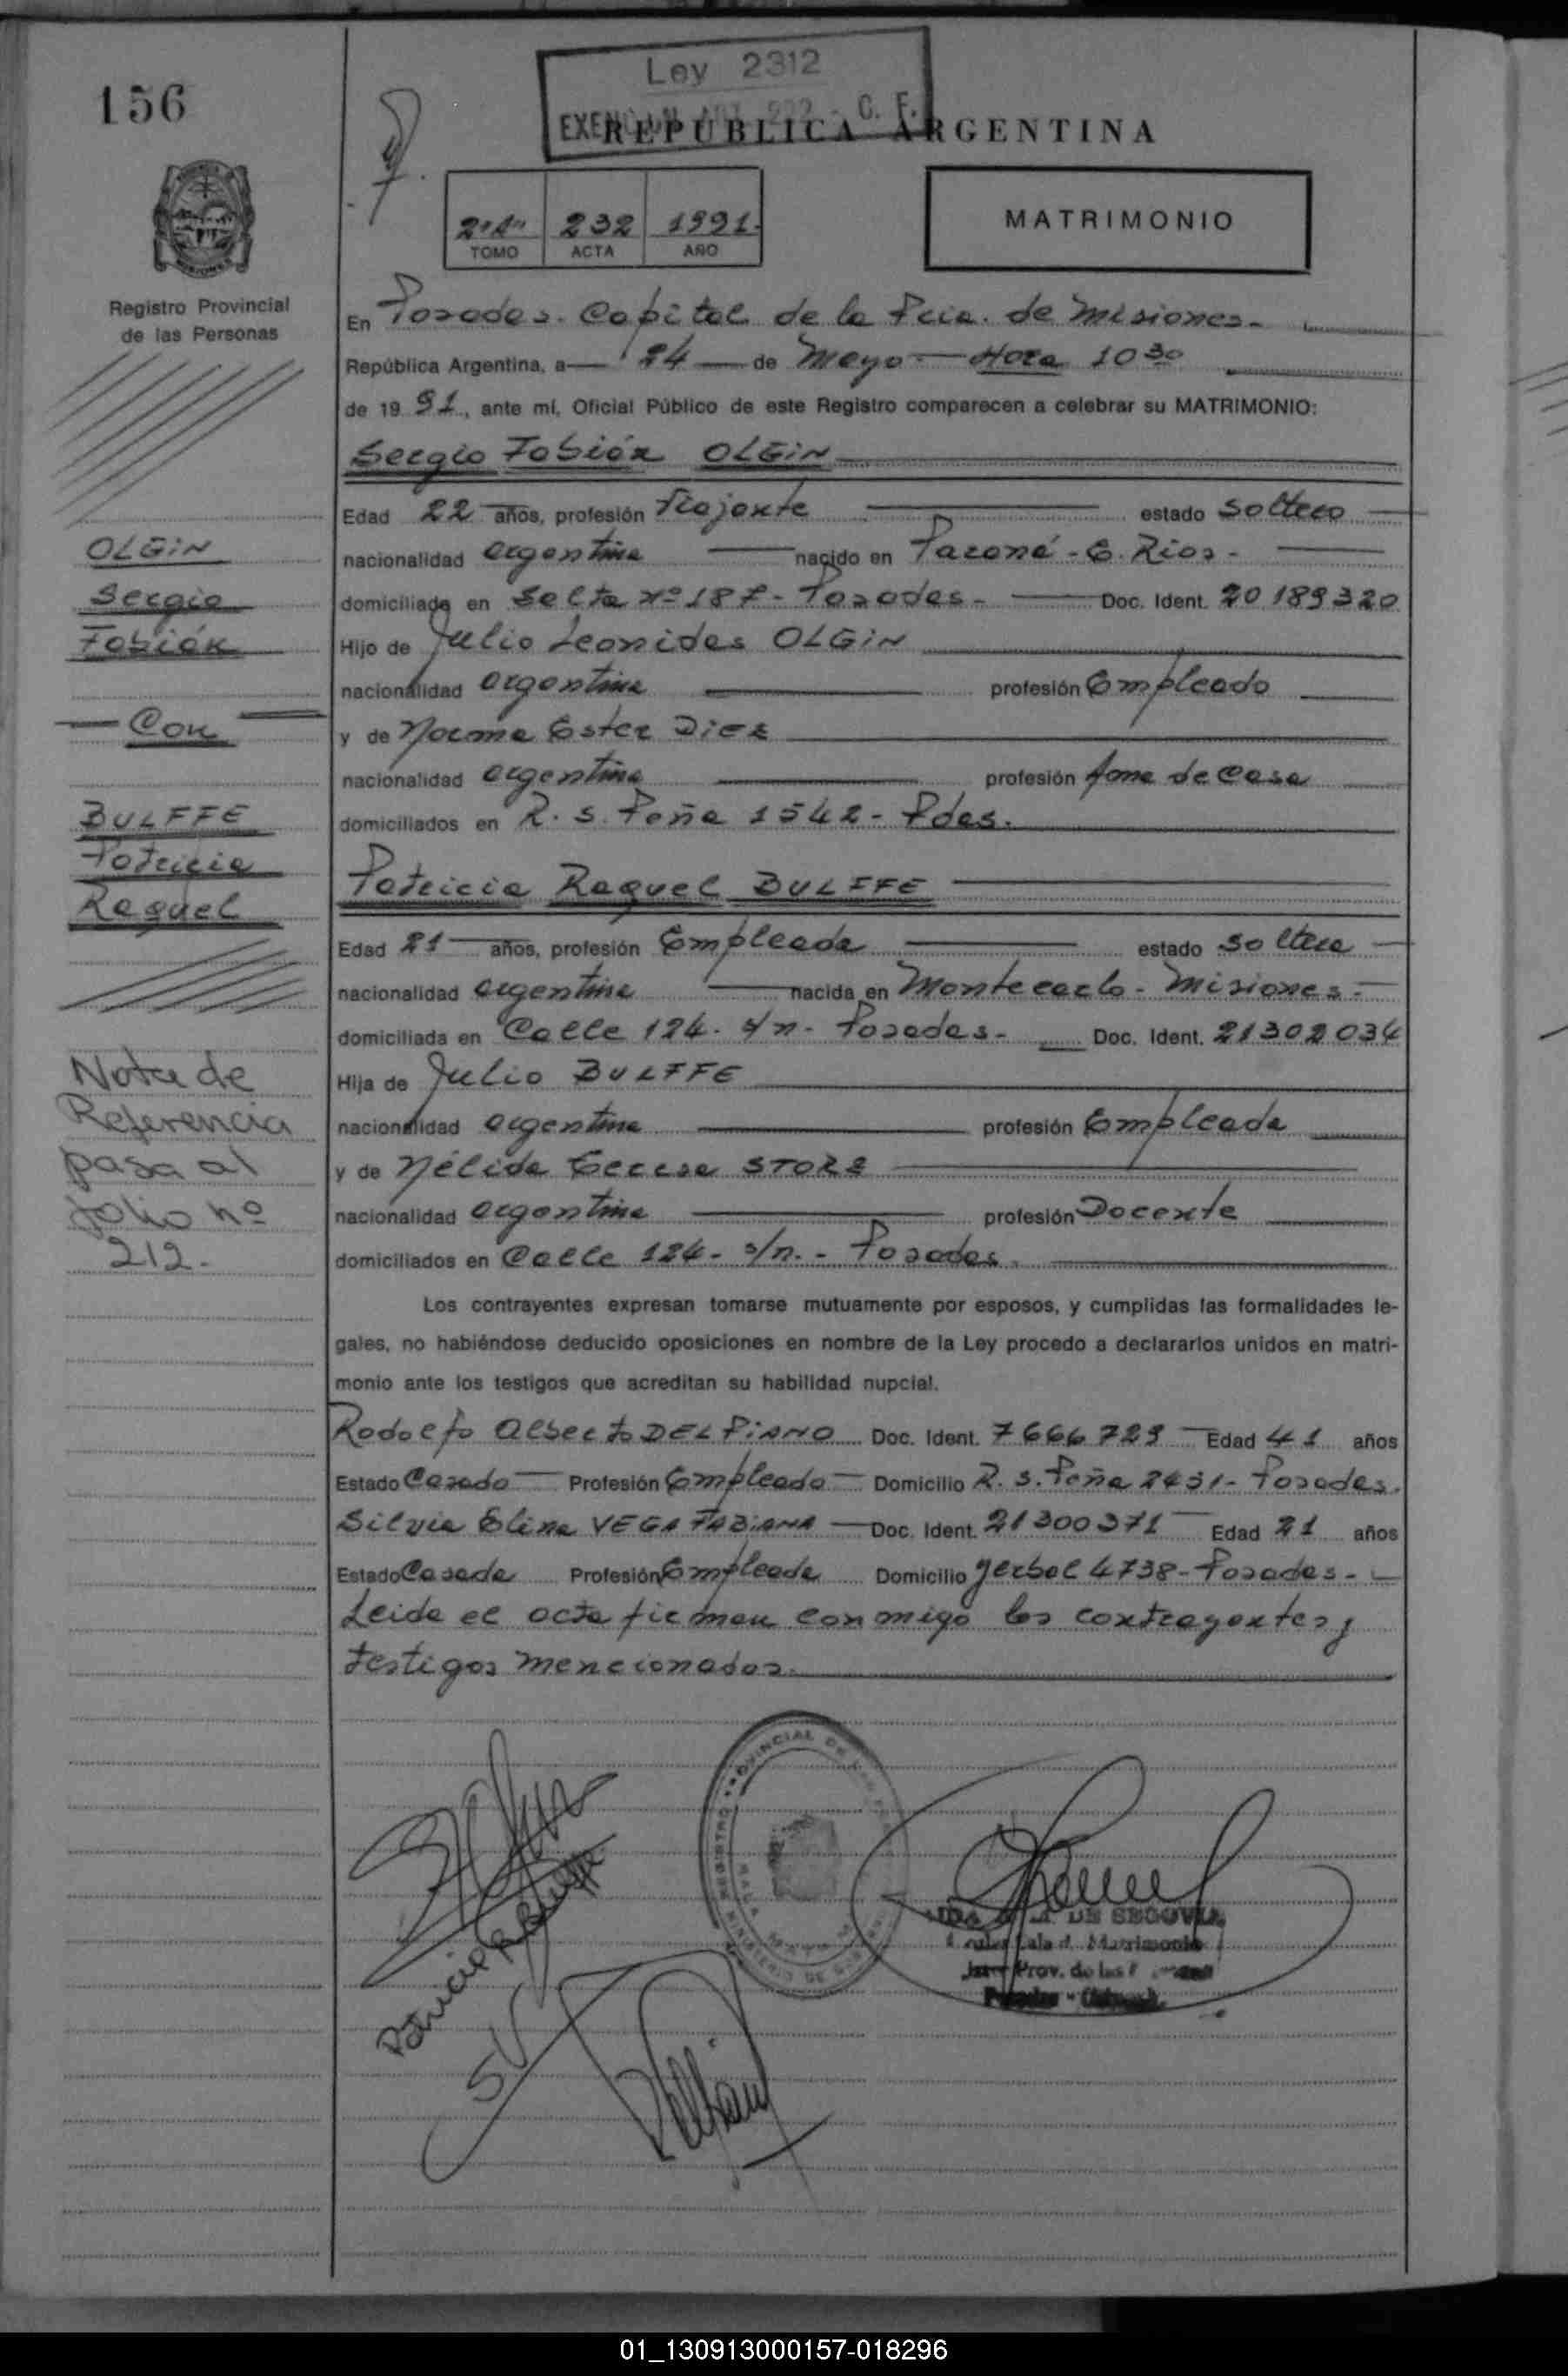 156
Ley 2312
EXENCION ART. 222 - C. F.
REPUBLICA ARGENTINA
232 1991.
TOMO ACTA AÑO
MATRIMONIO
Registro Provincial
de las Personas
En Posadas. Capital de la Pcia. de Misiones.
República Argentina, a 24 de Mayo - Hora 10 30
de 19 91, ante mí, Oficial Público de este Registro comparecen a celebrar su MATRIMONIO:
Sergio Fabián OLGiN
Edad 22 años, profesión Viajante estado soltero
nacionalidad argentina nacido en Paraná - E. Rios -
domiciliado en Salta Nº 187 - Posadas - Doc. Ident. 20 189320
Hijo de Julio Leonides OLGiN
nacionalidad argentina profesión Empleado
y de Norma Ester DiEZ
nacionalidad argentina profesión Ama de Casa
domiciliados en R. S. Peña 1542 - Pdas.
Patricia Raquel BULFFE
Edad 21 años, profesión Empleada estado soltera
nacionalidad argentina nacida en Montecarlo - Misiones -
domiciliada en Calle 124. s/n - Posadas - Doc. Ident. 21302034
Hija de Julio BULFFE
nacionalidad argentina profesión Empleada
y de Nélida STORZ
nacionalidad argentina profesión Docente
domiciliados en Calle 124 - s/n. - Posadas.
OLGiN
Sergio
Fabián
Con
BULFFE
Patricia
Raquel
Nota de
Referencia
pasa al
folio nº
212.
Los contrayentes expresan tomarse mutuamente por esposos, y cumplidas las formalidades le-
gales, no habiéndose deducido oposiciones en nombre de la Ley procedo a declararlos unidos en matri-
monio ante los testigos que acreditan su habilidad nupcial.
Rodolfo Alberto DELPiANO Doc. Ident. 7666729 Edad 41 años
Estado Casado Profesión Empleado Domicilio R. S. Peña 2431 - Posadas.
Silvia Elina VEGA FABiANA Doc. Ident. 21300371 Edad 21 años
Estado Casada Profesión Empleada Domicilio Yerbal 4738 - Posadas -
Leida el acta firman conmigo los contrayentes y
testigos mencionados.
REGISTRO PROVINCIAL DE LAS
MINISTERIO DE
Patricia R. Bulffe
DE SEGOVIA
Sala d. Matrimonio
Prov. de las
01_130913000157-018296